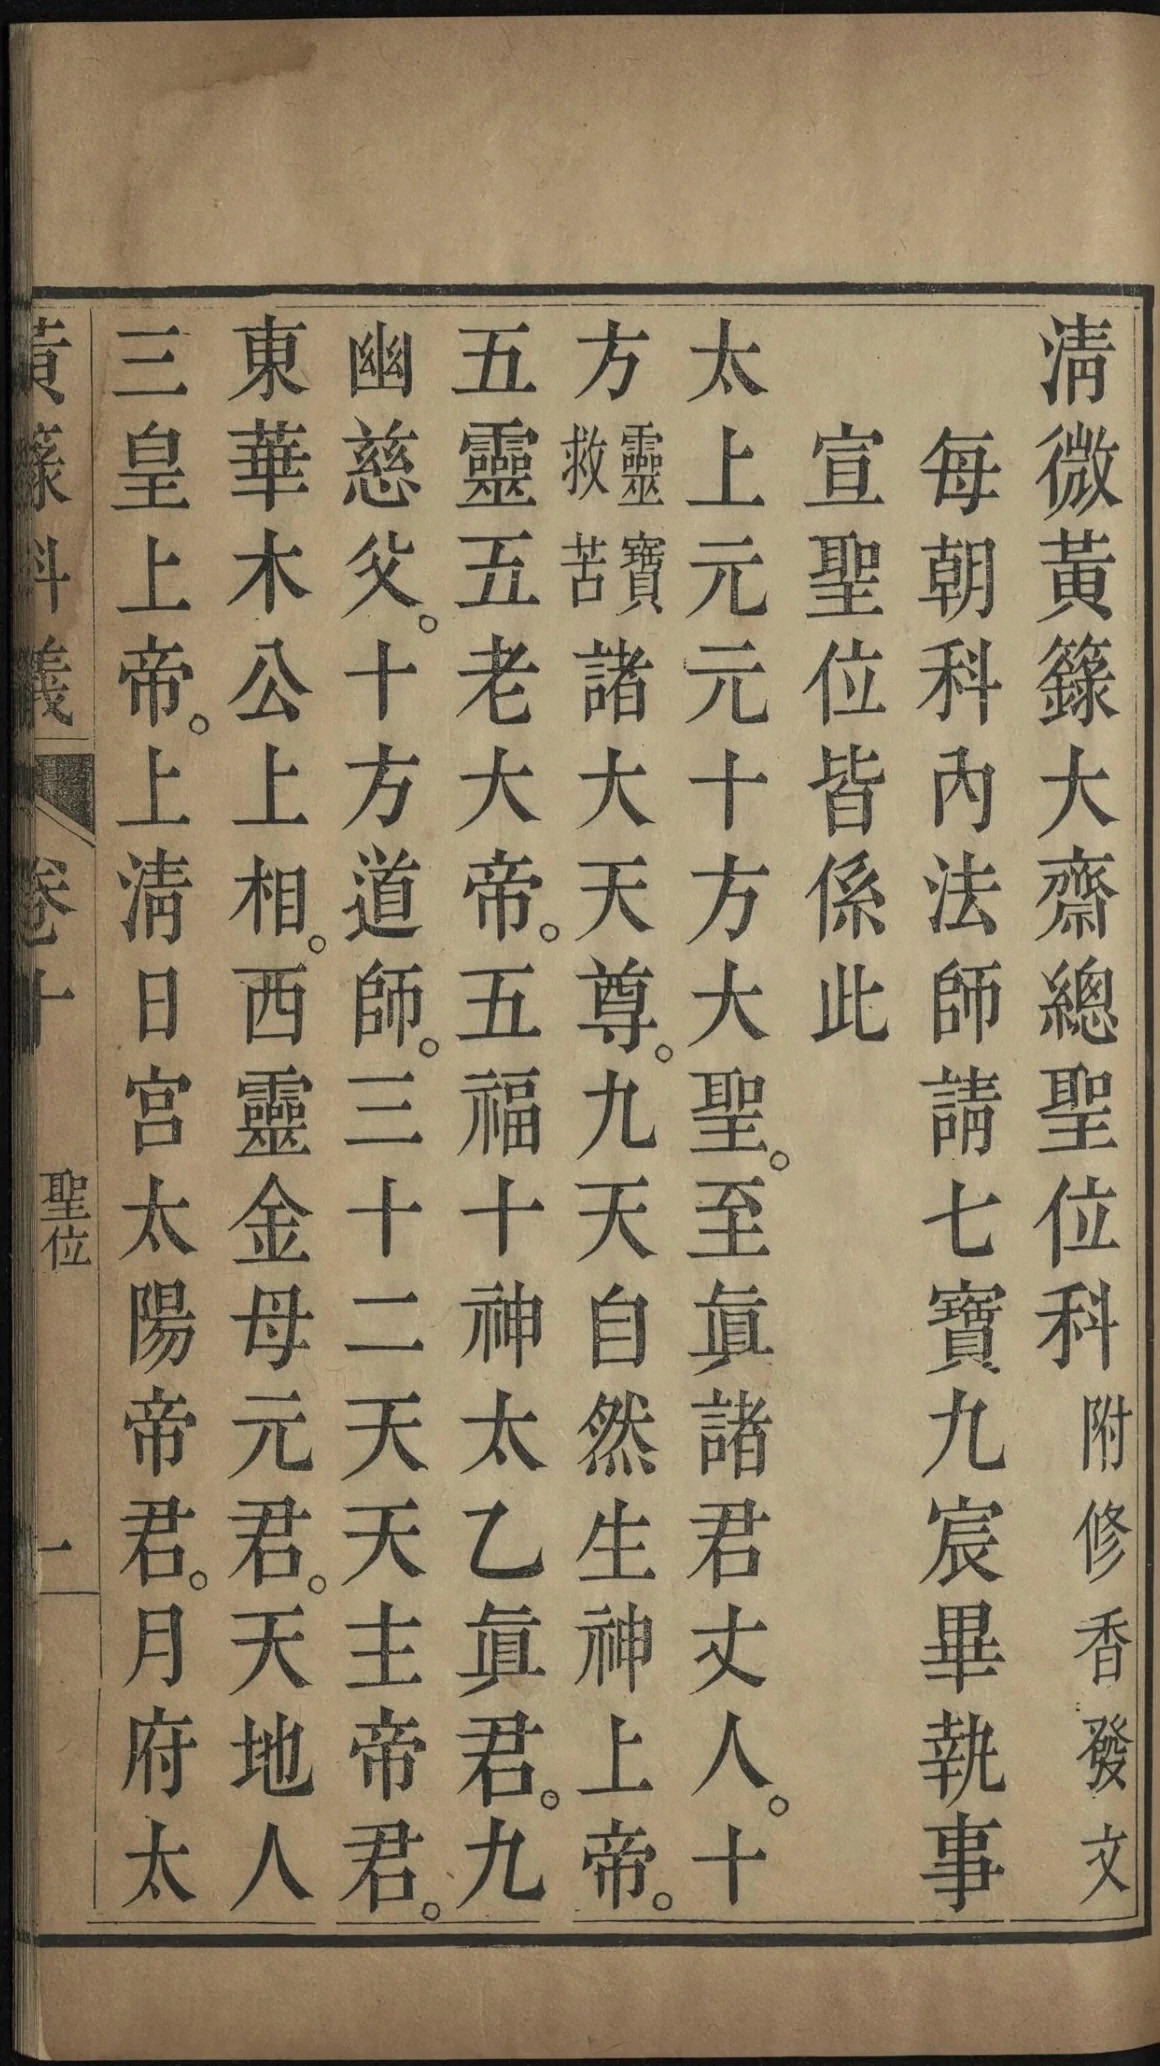 淸微黃籙大齋總聖位科附修香發文
每朝科內法師請七寶九宸畢執事
宣聖位皆係此
太上元元十方大聖。至眞諸君丈人。十
方靈寶救苦諸大天尊。九天自然生神上帝。
五靈五老大帝。五福十神太乙眞君。九
幽慈父。十方道師。三十二天天主帝君。
東華木公上相。西靈金母元君。天地人
三皇上帝。上淸日宮太陽帝君。月府太
黃籙科儀 卷十 聖位 二